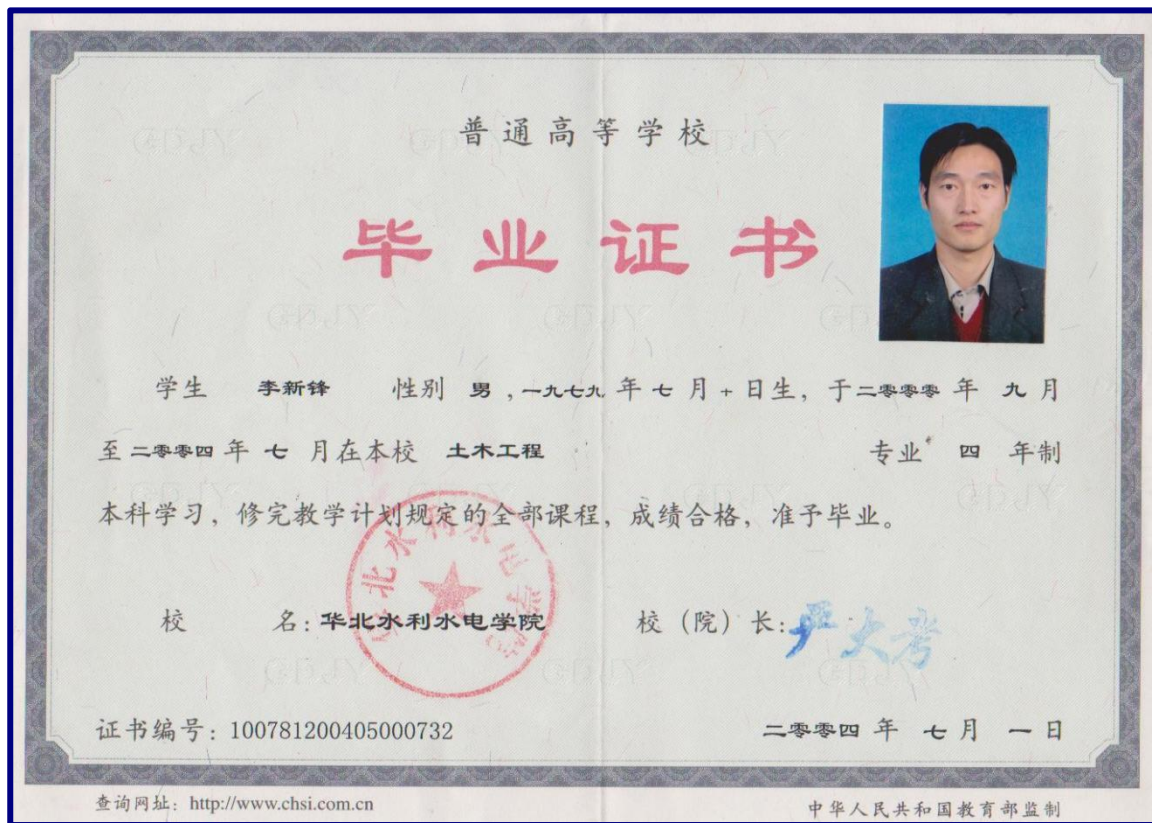 普通高等学校
毕业证书
学生 李新锋 性别 男,一九七九 年 七 月 十 日生,于二零零零 年 九 月
至二零零四 年 七 月在本校 土木工程 专业 四 年制
本科学习,修完教学计划规定的全部课程,成绩合格,准予毕业。
华北水利水电学院
校 名:华北水利水电学院 校(院)长:严大考
证书编号:100781200405000732 二零零四 年 七 月 一 日
查询网址:http://www.chsi.com.cn 中华人民共和国教育部监制